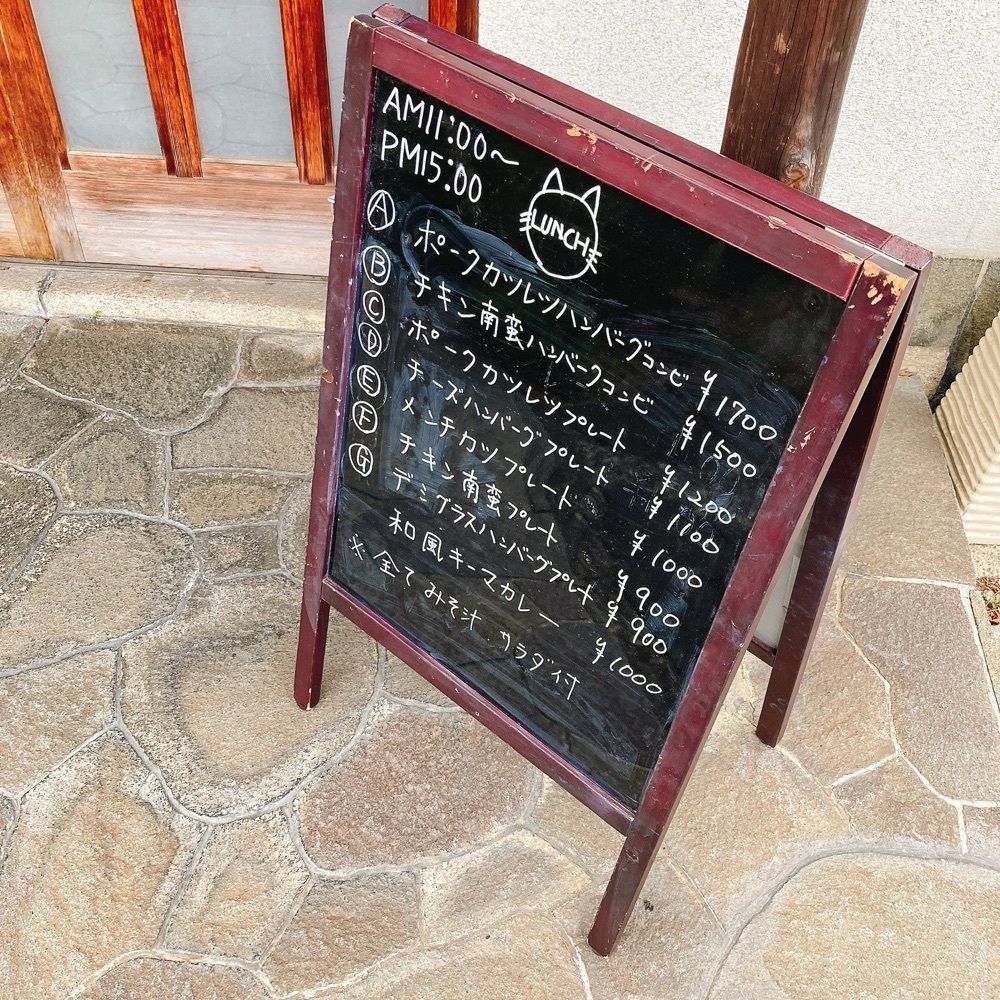 AM11:00～
PM15:00
LUNCH
Ⓐ ポークカツレツハンバーグコンビ ¥1700
Ⓑ チキン南蛮ハンバーグコンビ ¥1500
Ⓒ ポークカツレツプレート ¥1200
Ⓓ チーズハンバーグプレート ¥1100
Ⓔ メンチカツプレート ¥1000
Ⓕ チキン南蛮プレート ¥900
Ⓖ デミグラスハンバーグプレート ¥900
和風キーマカレー ¥1000
※全てみそ汁、サラダ付